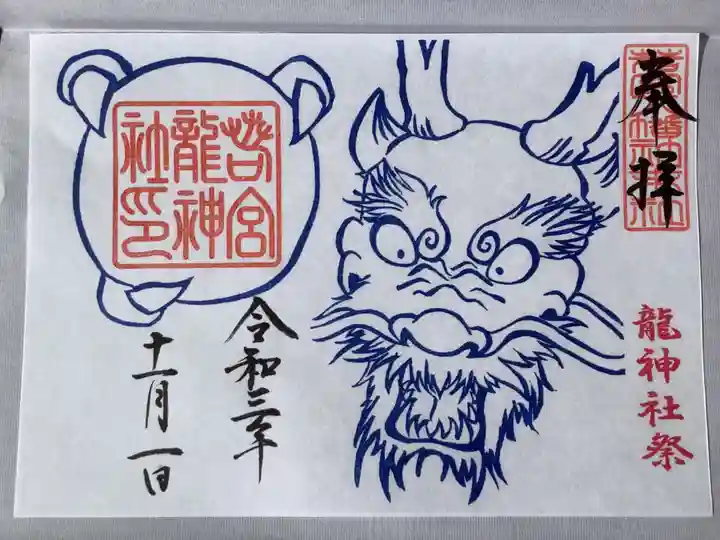 奉拝
龍神社祭
若宮
龍神
社印
令和二年
十一月一日